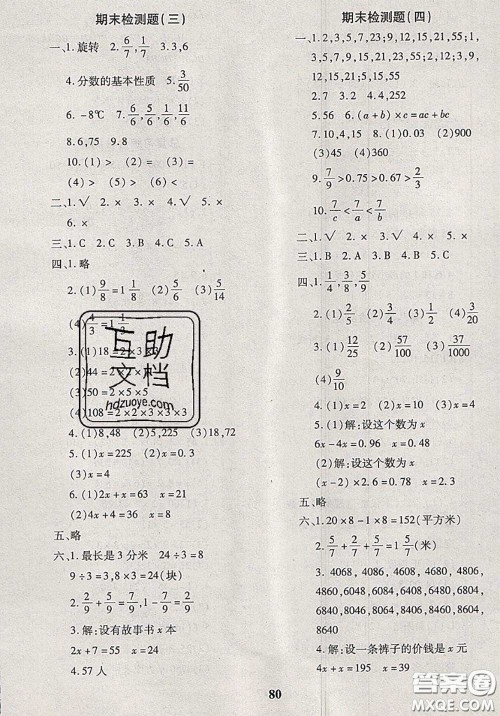 期末检测题(三)
一、1.旋转 2.6/7,1/7 3.3,6
4.分数的基本性质 5.3/50
6.-8℃ 7.6/7,5/6,1/6,11/6
8.6,75 9.8
10.(1)> (2)= (3)=
(4)> (5)> (6)<
二、1.√ 2.× 3.× 4.√ 5.×
6.×
三、1.C 2.C 3.B 4.C 5.A
四、1.略
2.(1)9/8=1 1/8 (2)5/6 (3)5/14
(4)4/3=1 1/3
3.(1)18=2×3×3
(2)44=2×2×11
(3)50=2×5×5
(4)108=2×2×3×3×3
4.(1)8,48 (2)5,225 (3)18,72
5.(1)x=225 (2)x=0.3
(3)x=4
6.(1)2x+x=36 x=12
(2)4x+4=24 x=5
五、略
六、1.最长是3分米 24÷3=8
9÷3=3 3×8=24(块)
2.2/9+2/9+5/9=1
3.解:设有故事书x本
2x+7=55 x=24
4.57人
期末检测题(四)
一、1.2,3,5,7,23;9,12,15,21,55;1;
3,5,7,9,15,21,23,55;2,12;9,12,15,21
2.7 3.2 4.4,252
5.56 6.(a+b)×c=ac+bc
7.10,4,15 8.(1)0.03 (2)900
(3)45 (4)360
9.7/9>0.75>0.71>2/3
10.7/9<a/7<7/7
二、1.√ 2.× 3.× 4.× 5.×
三、1.B 2.B 3.A 4.B 5.C
四、1.1/4,3/8,5/9
2.(1)2/5 (2)3/2 (3)2/5
3.(1)12/25 (2)37/100 (3)57/1000
(4)9/10
4.(1)解:设这个数为x
6x-4x=0.96 x=0.48
(2)解:设这个数为x
4x-2=10 x=3
五、略
六、1.20×8-1×8=152(平方米)
2.3/5+2/5+3/5=1 3/5(米)
3.4068,4086,4608,4680,4806,
4860,6048,6084,6408,6480,
6804,6840,8046,8064,8406,8460,8604,
8640
4.解:设一条裤子的价钱是x元
4x+x=195 x=39
80
互助
文档
hdzuoye.com
答案圈
MXQE.COM